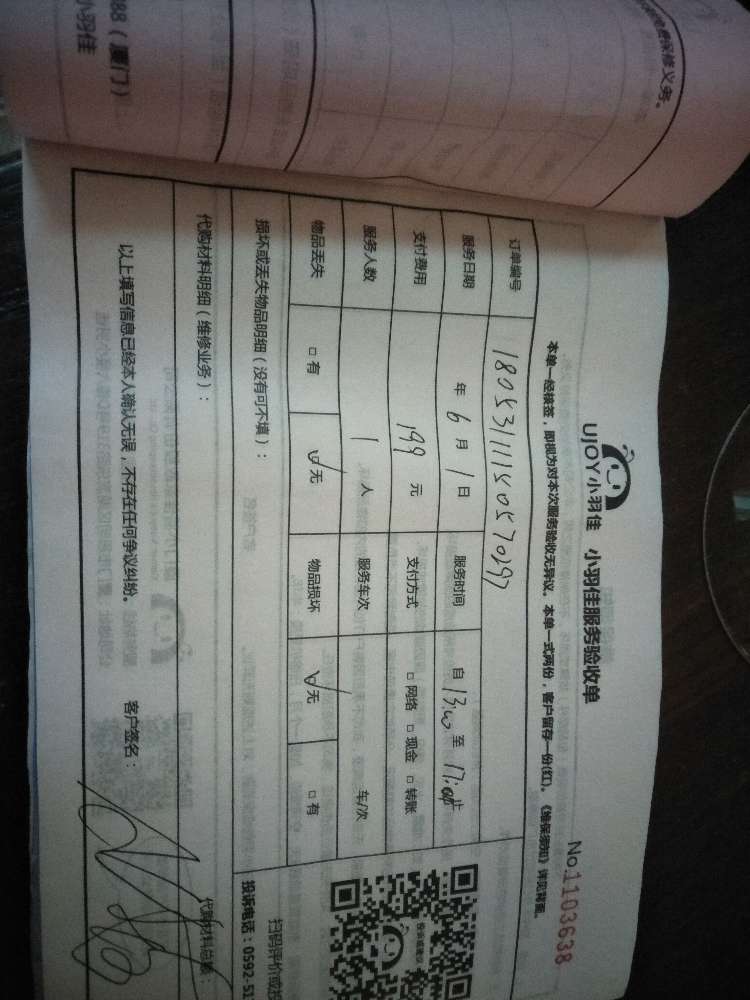 免费保修义务。
88（厦门）
小羽佳
UJOY小羽佳 小羽佳服务验收单
No.1103638
本单一经核签，即视为对本次服务验收无异议。本单一式两份，客户留存一份(红)。《维保须知》详见背面。
订单编号 18053111150570297
服务日期 年 6 月 1 日 服务时间 自 13:00 至 17:00 止
支付费用 199 元 支付方式 □ 网络 □ 现金 □ 转账
服务人数 1 人 服务车次 车/次
物品丢失 □ 有 ☑ 无 物品损坏 ☑ 无 □ 有
损坏或丢失物品明细（没有可不填）：
扫码评价或投
投诉电话：0592-51
代购材料明细（维修业务）：
代购材料总额：
以上填写信息已经本人确认无误，不存在任何争议纠纷。 客户签名：